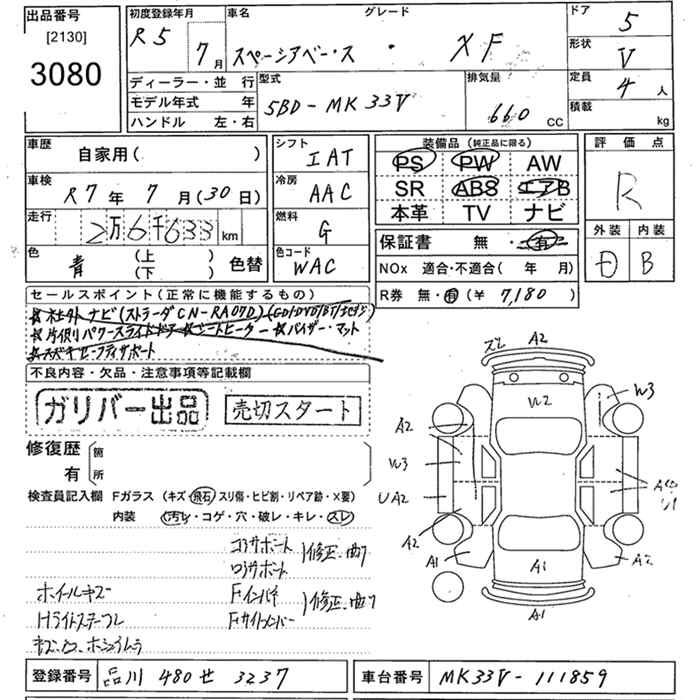 出品番号
[2130]
3080
初度登録年月
R5
7月
車名
スペーシアベース
グレード
XF
ドア
5
形状
V
ディーラー・並 行
モデル年式 年
ハンドル 左・右
型式
5BD-MK33V
排気量
660 CC
定員
4 人
積載
kg
車歴
自家用( )
シフト
IAT
装備品 (純正品に限る)
PS PW AW
SR ABS エアB
本革 TV ナビ
評価点
R
車検
R7年 7月(30日)
冷房
AAC
走行
2万6千633km
燃料
G
外装 内装
D B
色
青 (上下) 色替
色コード
WAC
保証書 無・有
NOx 適合・不適合( 年 月)
R券 無・有(¥ 7,180 )
セールスポイント(正常に機能するもの)
★社外ナビ(ストラーダCN-RA07D)(CD/DVD/BT/
★片側パワースライドドア ★シートヒーター ★バイザー・マット
不良内容・欠品・注意事項等記載欄
ガリバー出品
売切スタート
修復歴
有
箇所
検査員記入欄 Fガラス (キズ・飛石・スリ傷・ヒビ割・リペア跡・×要)
内装 (汚れ・コゲ・穴・破レ・キレ・スレ)
コアサポート
ロアサポート
修正・曲り
ホイールキズ
Fインパネ
修正・曲り
Fサイドメンバー
A2
W2
W3
A2
W3
UA2
A2
A1
A1
A2
A1
登録番号 品川 480 せ 3237
車台番号 MK33V-111859